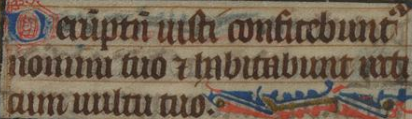 Veruptn iusti confitebunt
nomini tuo ⁊ inhbitabunt recti
cum uultu tuo.